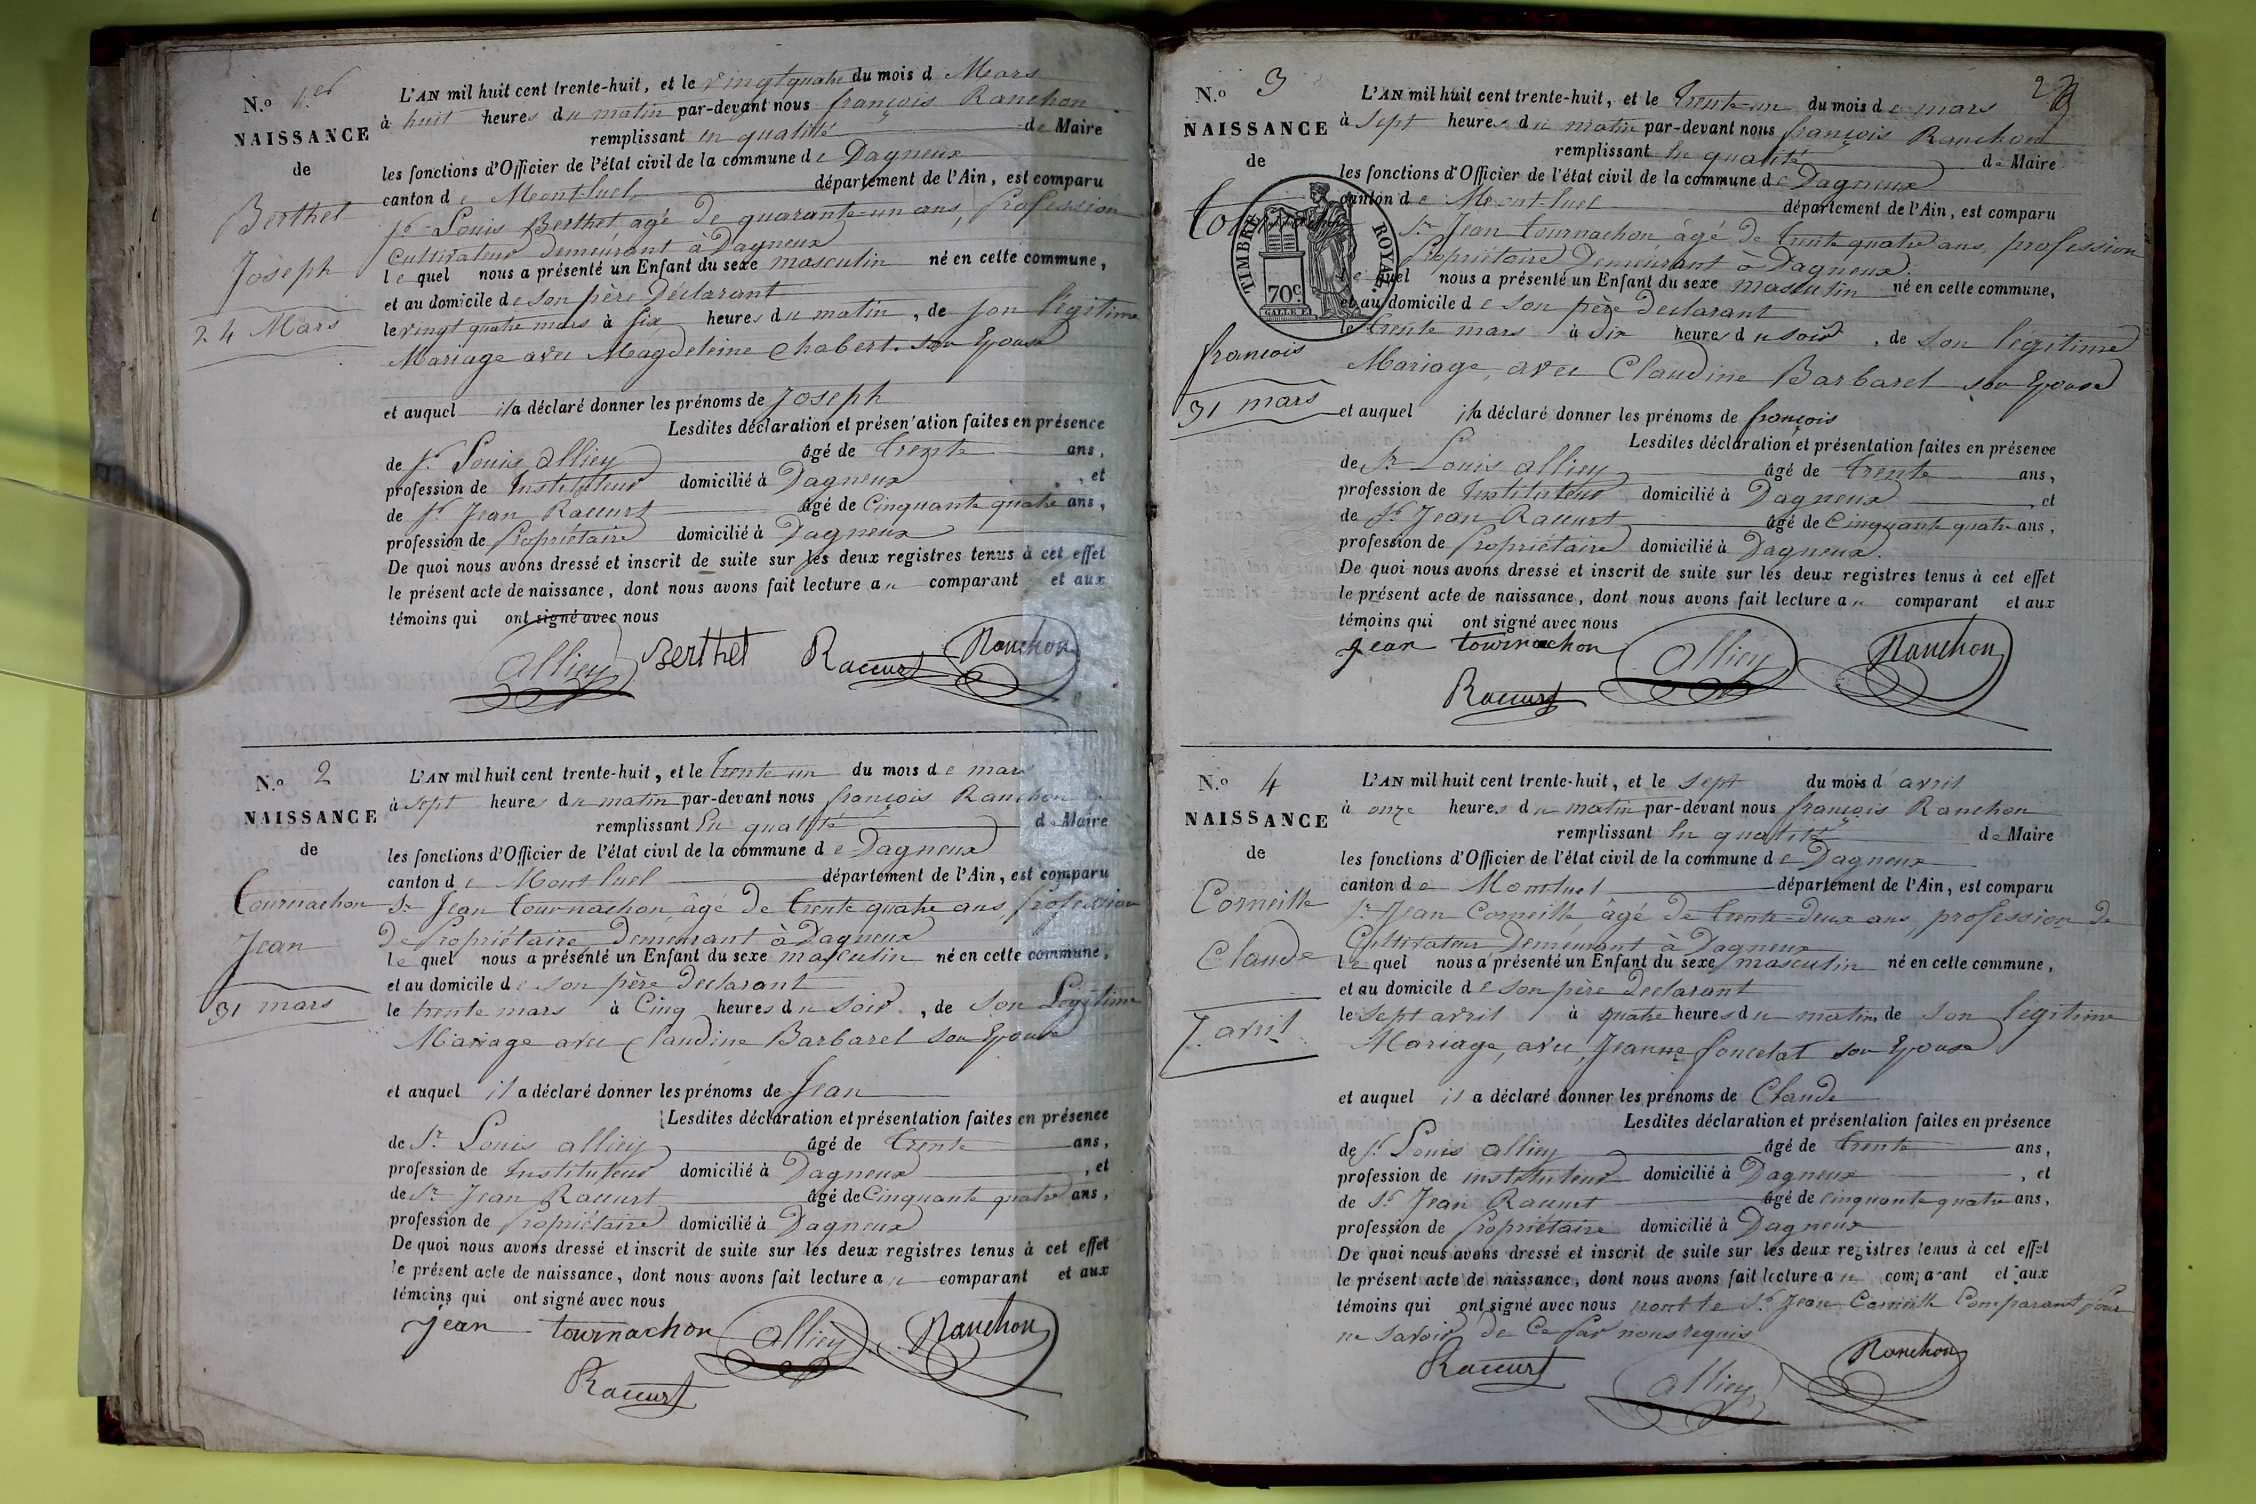 N.º 1.er
NAISSANCE
de
Berthet
Joseph
24 Mars
L'AN mil huit cent trente-huit, et le vingt quatre du mois d Mars
à huit heures du matin par-devant nous françois Ranchon
remplissant en qualité de Maire
les fonctions d'Officier de l'état civil de la commune de Dagneux
canton de Montluel, département de l'Ain, est comparu
Sr Louis Berthet, agé de quarante-un ans, profession
Cultivateur demeurant à Dagneux
lequel nous a présenté un Enfant du sexe masculin né en cette commune,
et au domicile de son père Déclarant
le vingt quatre mars à six heures du matin, de son légitime
Mariage avec Magdeleine Chabert son Epouse
et auquel il a déclaré donner les prénoms de Joseph
Lesdites déclaration et présen'ation faites en présence
de Sr Louis alliey âgé de trente ans,
profession de Instituteur domicilié à Dagneux, et
de Sr Jean Raccurt âgé de Cinquante quatre ans,
profession de Propriétaire domicilié à Dagneux
De quoi nous avons dressé et inscrit de suite sur les deux registres tenus à cet effet
le présent acte de naissance, dont nous avons fait lecture au comparant et aux
témoins qui ont signé avec nous
alliey Berthet Raccurt Ranchon
N.º 2
NAISSANCE
de
Tournachon
Jean
31 mars
L'AN mil huit cent trente-huit, et le trente un du mois de mars
à sept heures du matin par-devant nous françois Ranchon
remplissant En qualité de Maire
les fonctions d'Officier de l'état civil de la commune de Dagneux
canton de Montluel département de l'Ain, est comparu
Sr Jean tournachon, âgé de trente quatre ans, profession
de Propriétaire Demeurant à Dagneux
lequel nous a présenté un Enfant du sexe masculin né en cette commune,
et au domicile de son père Declarant
le trente mars à Cinq heures du soir, de son Légitime
Mariage avec Claudine Barbaret son Epouse
et auquel il a déclaré donner les prénoms de Jean
Lesdites déclaration et présentation faites en présence
de Sr Louis alliey âgé de trente ans,
profession de Instituteur domicilié à Dagneux, et
de Sr Jean Raccurt âgé de Cinquante quatre ans,
profession de Propriétaire domicilié à Dagneux
De quoi nous avons dressé et inscrit de suite sur les deux registres tenus à cet effet
le présent acte de naissance, dont nous avons fait lecture au comparant et aux
témoins qui ont signé avec nous
Jean tournachon alliey Ranchon
Raccurt
N.º 3
NAISSANCE
de
tournachon
TIMBRE ROYAL.
70c.
françois
31 mars
L'AN mil huit cent trente-huit, et le trente-un du mois de mars
à sept heures du matin par-devant nous françois Ranchon
remplissant En qualité de Maire
les fonctions d'Officier de l'état civil de la commune de Dagneux
canton de Montluel département de l'Ain, est comparu
Sr Jean tournachon, âgé de trente quatre ans, profession
Propriétaire Demeurant à Dagneux.
lequel nous a présenté un Enfant du sexe masculin né en cette commune,
et au domicile de son père declarant
le trente mars à dix heures du soir, de son légitime
Mariage, avec Claudine Barbaret son Epouse
et auquel il a déclaré donner les prénoms de françois
Lesdites déclaration et présentation faites en présence
de Sr Louis alliey âgé de trente ans,
profession de Instituteur domicilié à Dagneux, et
de Sr Jean Raccurt âgé de Cinquante quatre ans,
profession de Propriétaire domicilié à Dagneux.
De quoi nous avons dressé et inscrit de suite sur les deux registres tenus à cet effet
le présent acte de naissance, dont nous avons fait lecture au comparant et aux
témoins qui ont signé avec nous
Jean tournachon alliey Ranchon
Raccurt
N.º 4
NAISSANCE
de
Corneille
Claude
7 avril
L'AN mil huit cent trente-huit, et le sept du mois d'avril
à onze heures du matin par-devant nous françois Ranchon
remplissant En qualité de Maire
les fonctions d'Officier de l'état civil de la commune de Dagneux
canton de Montluel département de l'Ain, est comparu
Sr Jean Corneille âgé de trente-deux ans, profession de
Cultivateur Demeurant à Dagneux
lequel nous a présenté un Enfant du sexe masculin né en cette commune,
et au domicile de son père Declarant
le sept avril à quatre heures du matin de son légitime
Mariage, avec Jeanne Poncelat son Epouse
et auquel il a déclaré donner les prénoms de Claude
Lesdites déclaration et présentation faites en présence
de Sr Louis alliey âgé de trente ans,
profession de instituteur domicilié à Dagneux, et
de Sr Jean Raccurt âgé de cinquante quatre ans,
profession de Propriétaire domicilié à Dagneux
De quoi nous avons dressé et inscrit de suite sur les deux registres tenus à cet effet
le présent acte de naissance, dont nous avons fait lecture au comparant et aux
témoins qui ont signé avec nous non le Sr Jean Corneille Comparant pour
ne savoir de Ce par nous requis
Raccurt alliey Ranchon